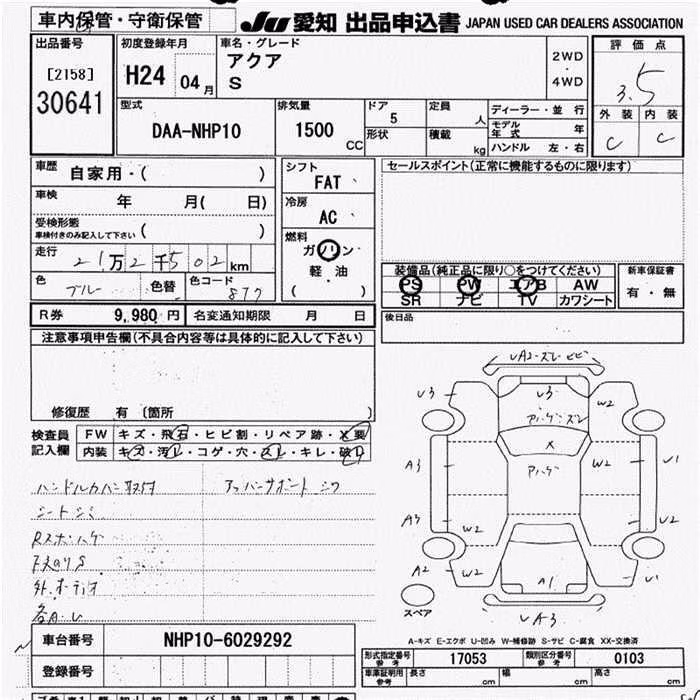 車内保管・守衛保管
JU 愛知 出品申込書 JAPAN USED CAR DEALERS ASSOCIATION
出品番号
[2158]
30641
初度登録年月
H24 04 月
車名・グレード
アクア
S
2WD
・
4WD
評価点
3.5
外装 内装
C C
型式
DAA-NHP10
排気量
1500 CC
ドア
5
形状
定員
人
積載
kg
ディーラー・並行
モデル年式 年
ハンドル 左・右
車歴
自家用・( )
車検
年 月( 日)
受検形態
車検付きのみ記入して下さい ( )
走行
21万2千502km
色
ブルー
色替
色コード
877
シフト
FAT
冷房
AC
燃料
ガソリン・
軽・油
( )
セールスポイント(正常に機能するものに限ります)
装備品(純正品に限り○をつけてください)
PS PW エアB AW
SR ナビ TV カワシート
新車保証書
有・無
後日品
R券 9,980 円
名変通知期限 月 日
注意事項申告欄(不具合内容等は具体的に記入して下さい)
修復歴 有 〔箇所 〕
検査員
記入欄
FW キズ・飛石・ヒビ割・リペア跡・X要
内装 キズ・汚れ・コゲ・穴・スレ・キレ・破れ
シートシミ
外オーディオ
UA2・スレ・ヒビ
U3
U3
W2
アハゲ・ズレ
X
A3
アハゲ
W2
U1
A3
W2
U2
A2
W2
A1
U1
スペア
UA3
A-キズ E-エクボ U-凹み W-補修跡 S-サビ C-腐食 XX-交換済
車台番号
NHP10-6029292
登録番号
型式指定番号
参考
17053
類別区分番号
参考
0103
車庫証明用
参考
長さ cm 幅 cm 高さ cm